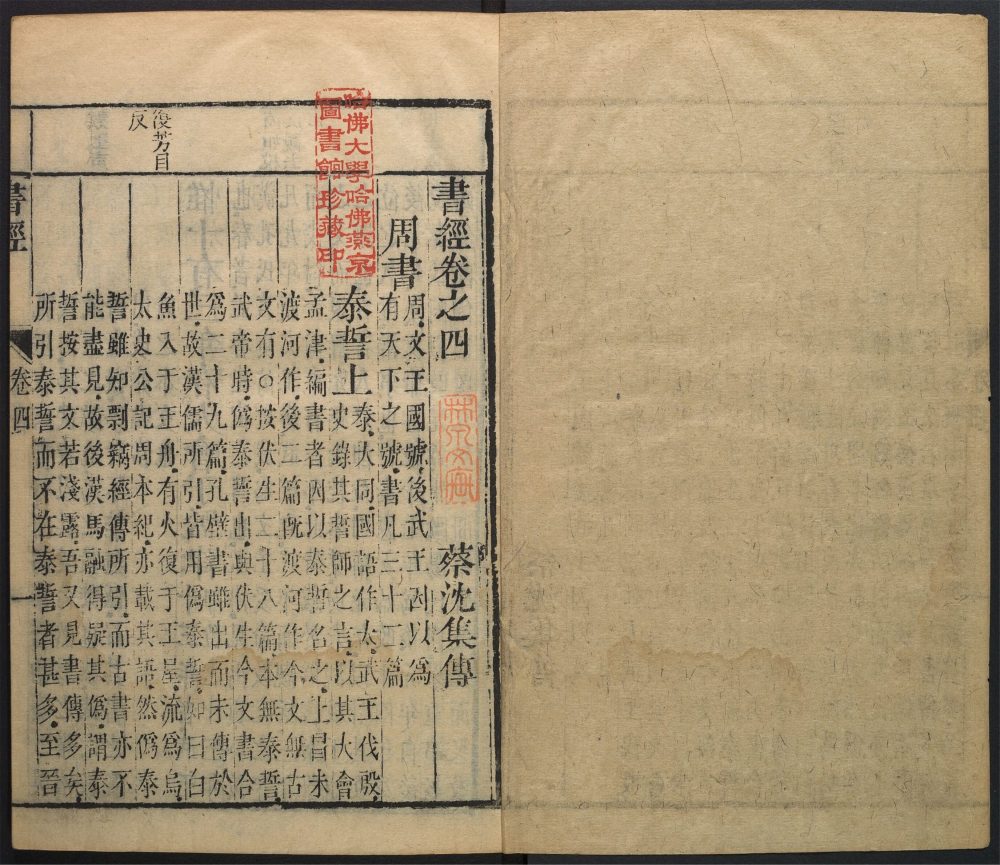 書經卷之四
蔡沈集傳
周書
周文王國號後武王因以爲
有天下之號書凡三十二篇
泰誓上
泰大同國語作大武王伐殷
史錄其誓師之言以其大會
孟津編書者因以泰誓名之上昌未
渡河作後二篇旣渡河作今文無古
文有○按伏生二十八篇本無泰誓
武帝時僞泰誓出與伏生今文書合
爲二十九篇孔壁書雖出而未傳於
世故漢儒所引皆用僞泰誓如曰白
魚入于王舟有火復于王屋流爲烏
太史公記周本紀亦載其語然僞泰
誓雖知剽竊經傳所引而古書亦不
能盡見故後漢馬融得疑其僞謂泰
誓按其文若淺露吾又見書傳多矣
所引泰誓而不在泰誓者甚多至晉
復芳目
反
書經
卷四
一
哈佛大學哈佛燕京
圖書館珍藏印